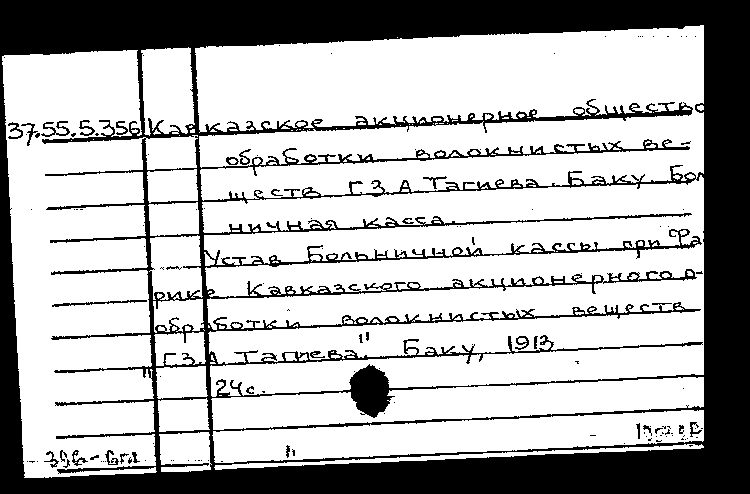 37.55.5.356 Кавказское акционерное общество
обработки волокнистых ве-
ществ Г.З.А. Тагиева. Баку. Бол
ничная касса.
Устав Больничной кассы при Фа
рике Кавказского акционерного о-
обработки волокнистых веществ
"Г.З.А. Тагиева". Баку, 1913
24 с.